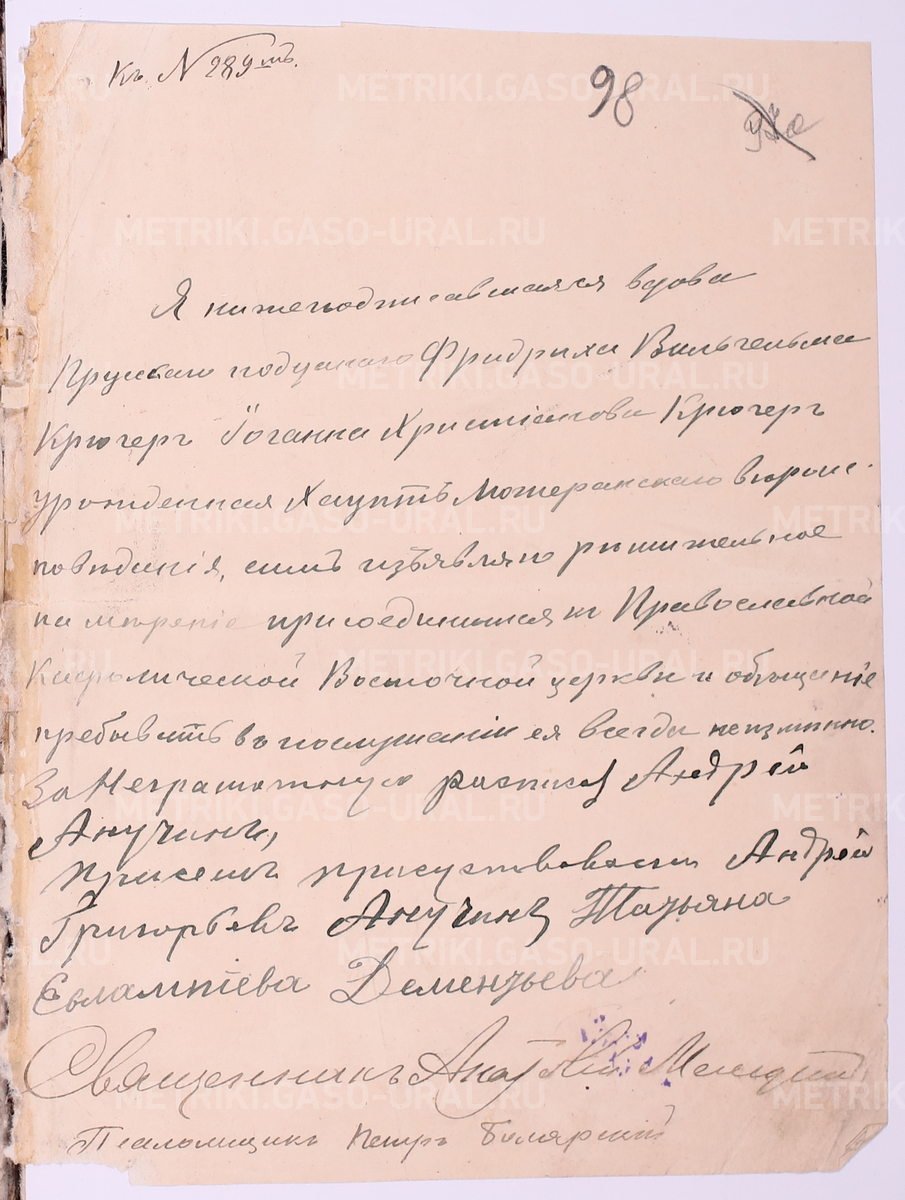 Къ № 289мъ.
98
Я нижеподписавшаяся вдова
Прускаго подданаго Фридриха Вильгельма
Крюгеръ Їоганна Христіанова Крюгеръ
урожденная Хауптъ Лютеранскаго вѣроис-
повѣданія, симъ изъявляю рѣшительное
намѣреніе присоединиться къ Православной
Кафолической Восточной церкви и обѣщаніе
пребывать въ послушаніи ея всегда неизмѣнно.
За Неграмотную росписался Андрей
Анучинъ,
При семъ присуствовали Андрей
Григорьевъ Анучинъ Татьяна
Евлампіева Дементьева
Священникъ
Псаломщикъ Петръ Белярскій
METRIKI.GASO-URAL.RU